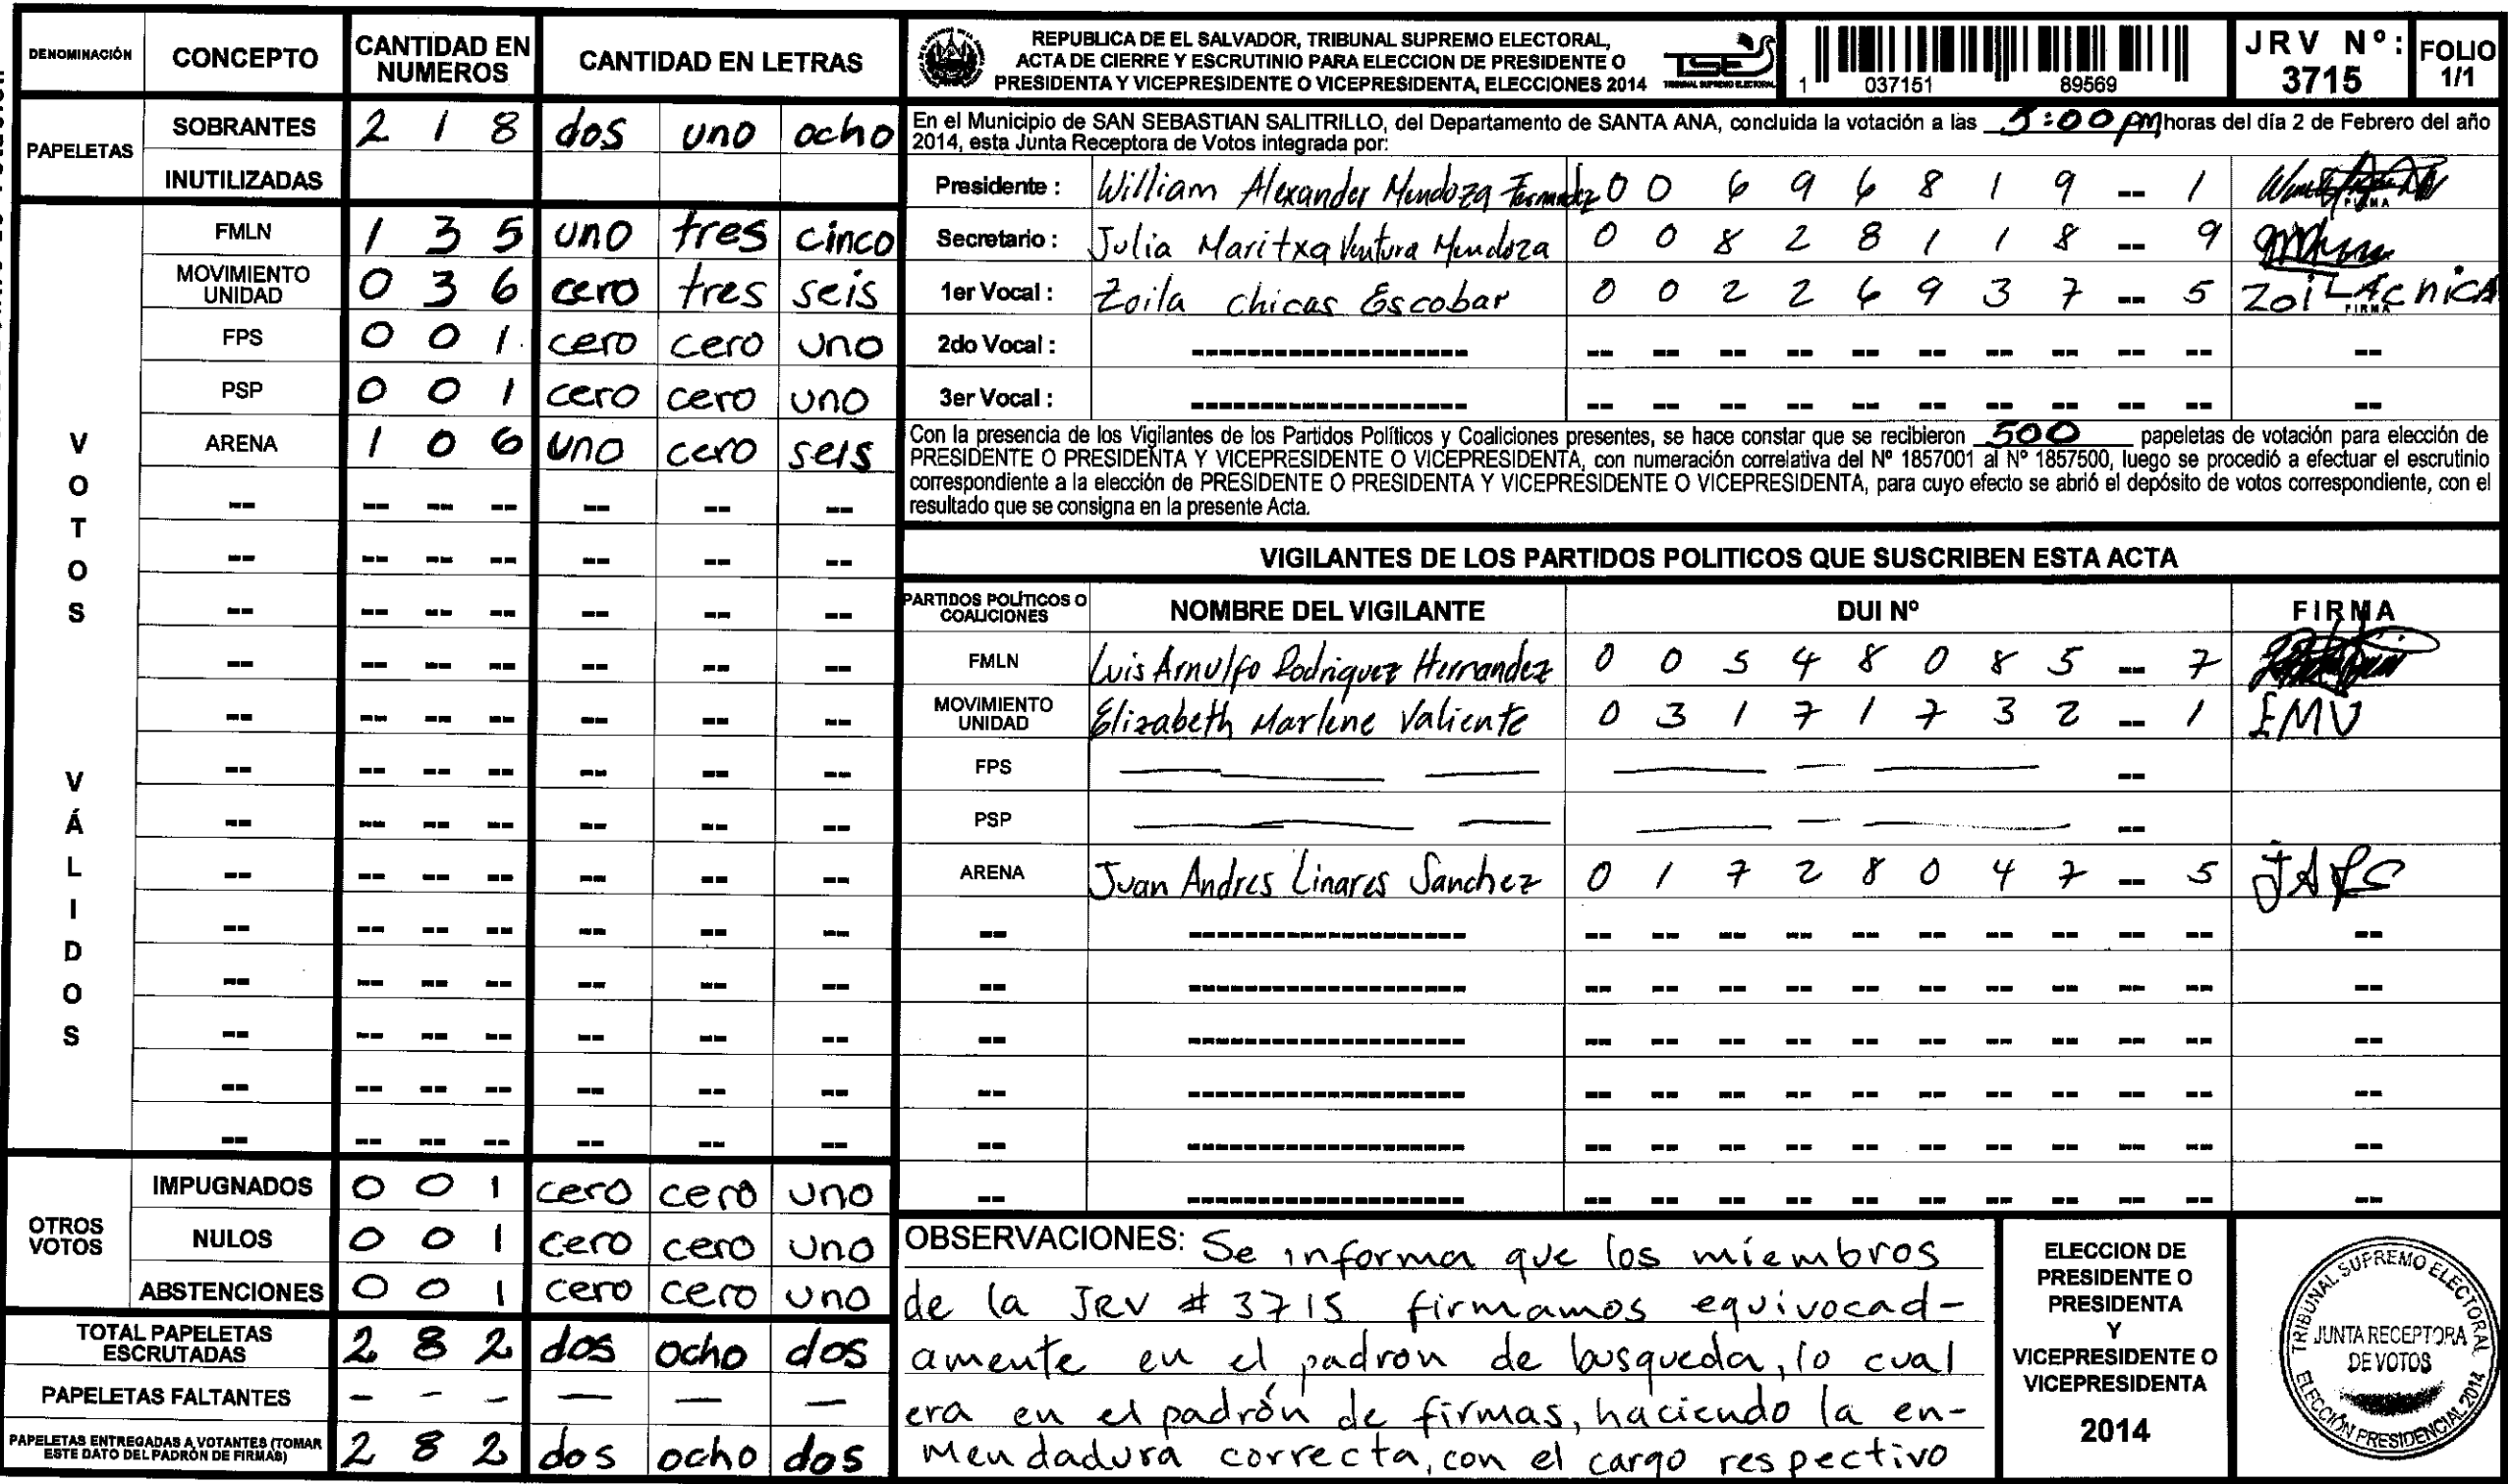 DENOMINACIÓN CONCEPTO CANTIDAD EN NUMEROS CANTIDAD EN LETRAS
PAPELETAS
SOBRANTES 2 1 8 dos uno ocho
INUTILIZADAS
VOTOS VÁLIDOS
FMLN 1 3 5 uno tres cinco
MOVIMIENTO UNIDAD 0 3 6 cero tres seis
FPS 0 0 1 cero cero uno
PSP 0 0 1 cero cero uno
ARENA 1 0 6 uno cero seis
OTROS VOTOS
IMPUGNADOS 0 0 1 cero cero uno
NULOS 0 0 1 cero cero uno
ABSTENCIONES 0 0 1 cero cero uno
TOTAL PAPELETAS ESCRUTADAS 2 8 2 dos ocho dos
PAPELETAS FALTANTES - - - — — —
PAPELETAS ENTREGADAS A VOTANTES (TOMAR ESTE DATO DEL PADRÓN DE FIRMAS) 2 8 2 dos ocho dos
REPUBLICA DE EL SALVADOR, TRIBUNAL SUPREMO ELECTORAL,
ACTA DE CIERRE Y ESCRUTINIO PARA ELECCION DE PRESIDENTE O
PRESIDENTA Y VICEPRESIDENTE O VICEPRESIDENTA, ELECCIONES 2014
TSE
TRIBUNAL SUPREMO ELECTORAL
1 037151 89569
JRV Nº: 3715
FOLIO 1/1
En el Municipio de SAN SEBASTIAN SALITRILLO, del Departamento de SANTA ANA, concluida la votación a las 5:00 pm horas del día 2 de Febrero del año
2014, esta Junta Receptora de Votos integrada por:
Presidente : William Alexander Mendoza Fernandez 0 0 6 9 6 8 1 9 -- 1 FIRMA
Secretario : Julia Maritxa Ventura Mendoza 0 0 8 2 8 1 1 8 -- 9
1er Vocal : Zoila chicas Escobar 0 0 2 2 6 9 3 7 -- 5 FIRMA
2do Vocal :
3er Vocal :
Con la presencia de los Vigilantes de los Partidos Políticos y Coaliciones presentes, se hace constar que se recibieron 500 papeletas de votación para elección de
PRESIDENTE O PRESIDENTA Y VICEPRESIDENTE O VICEPRESIDENTA, con numeración correlativa del Nº 1857001 al Nº 1857500, luego se procedió a efectuar el escrutinio
correspondiente a la elección de PRESIDENTE O PRESIDENTA Y VICEPRESIDENTE O VICEPRESIDENTA, para cuyo efecto se abrió el depósito de votos correspondiente, con el
resultado que se consigna en la presente Acta.
VIGILANTES DE LOS PARTIDOS POLITICOS QUE SUSCRIBEN ESTA ACTA
PARTIDOS POLÍTICOS O COALICIONES NOMBRE DEL VIGILANTE DUI Nº FIRMA
FMLN Luis Arnulfo Rodriguez Hernandez 0 0 5 4 8 0 8 5 -- 7
MOVIMIENTO UNIDAD Elizabeth Marlene Valiente 0 3 1 7 1 7 3 2 -- 1 EMV
FPS
PSP
ARENA Juan Andres Linares Sanchez 0 1 7 2 8 0 4 7 -- 5 JALS
OBSERVACIONES: Se informa que los miembros
de la JRV # 3715 firmamos equivocad-
amente en el padron de busqueda, lo cual
era en el padrón de firmas, haciendo la en-
mendadura correcta, con el cargo respectivo
ELECCION DE
PRESIDENTE O
PRESIDENTA
Y
VICEPRESIDENTE O
VICEPRESIDENTA
2014
TRIBUNAL SUPREMO ELECTORAL
JUNTA RECEPTORA
DE VOTOS
ELECCIÓN PRESIDENCIAL 2014